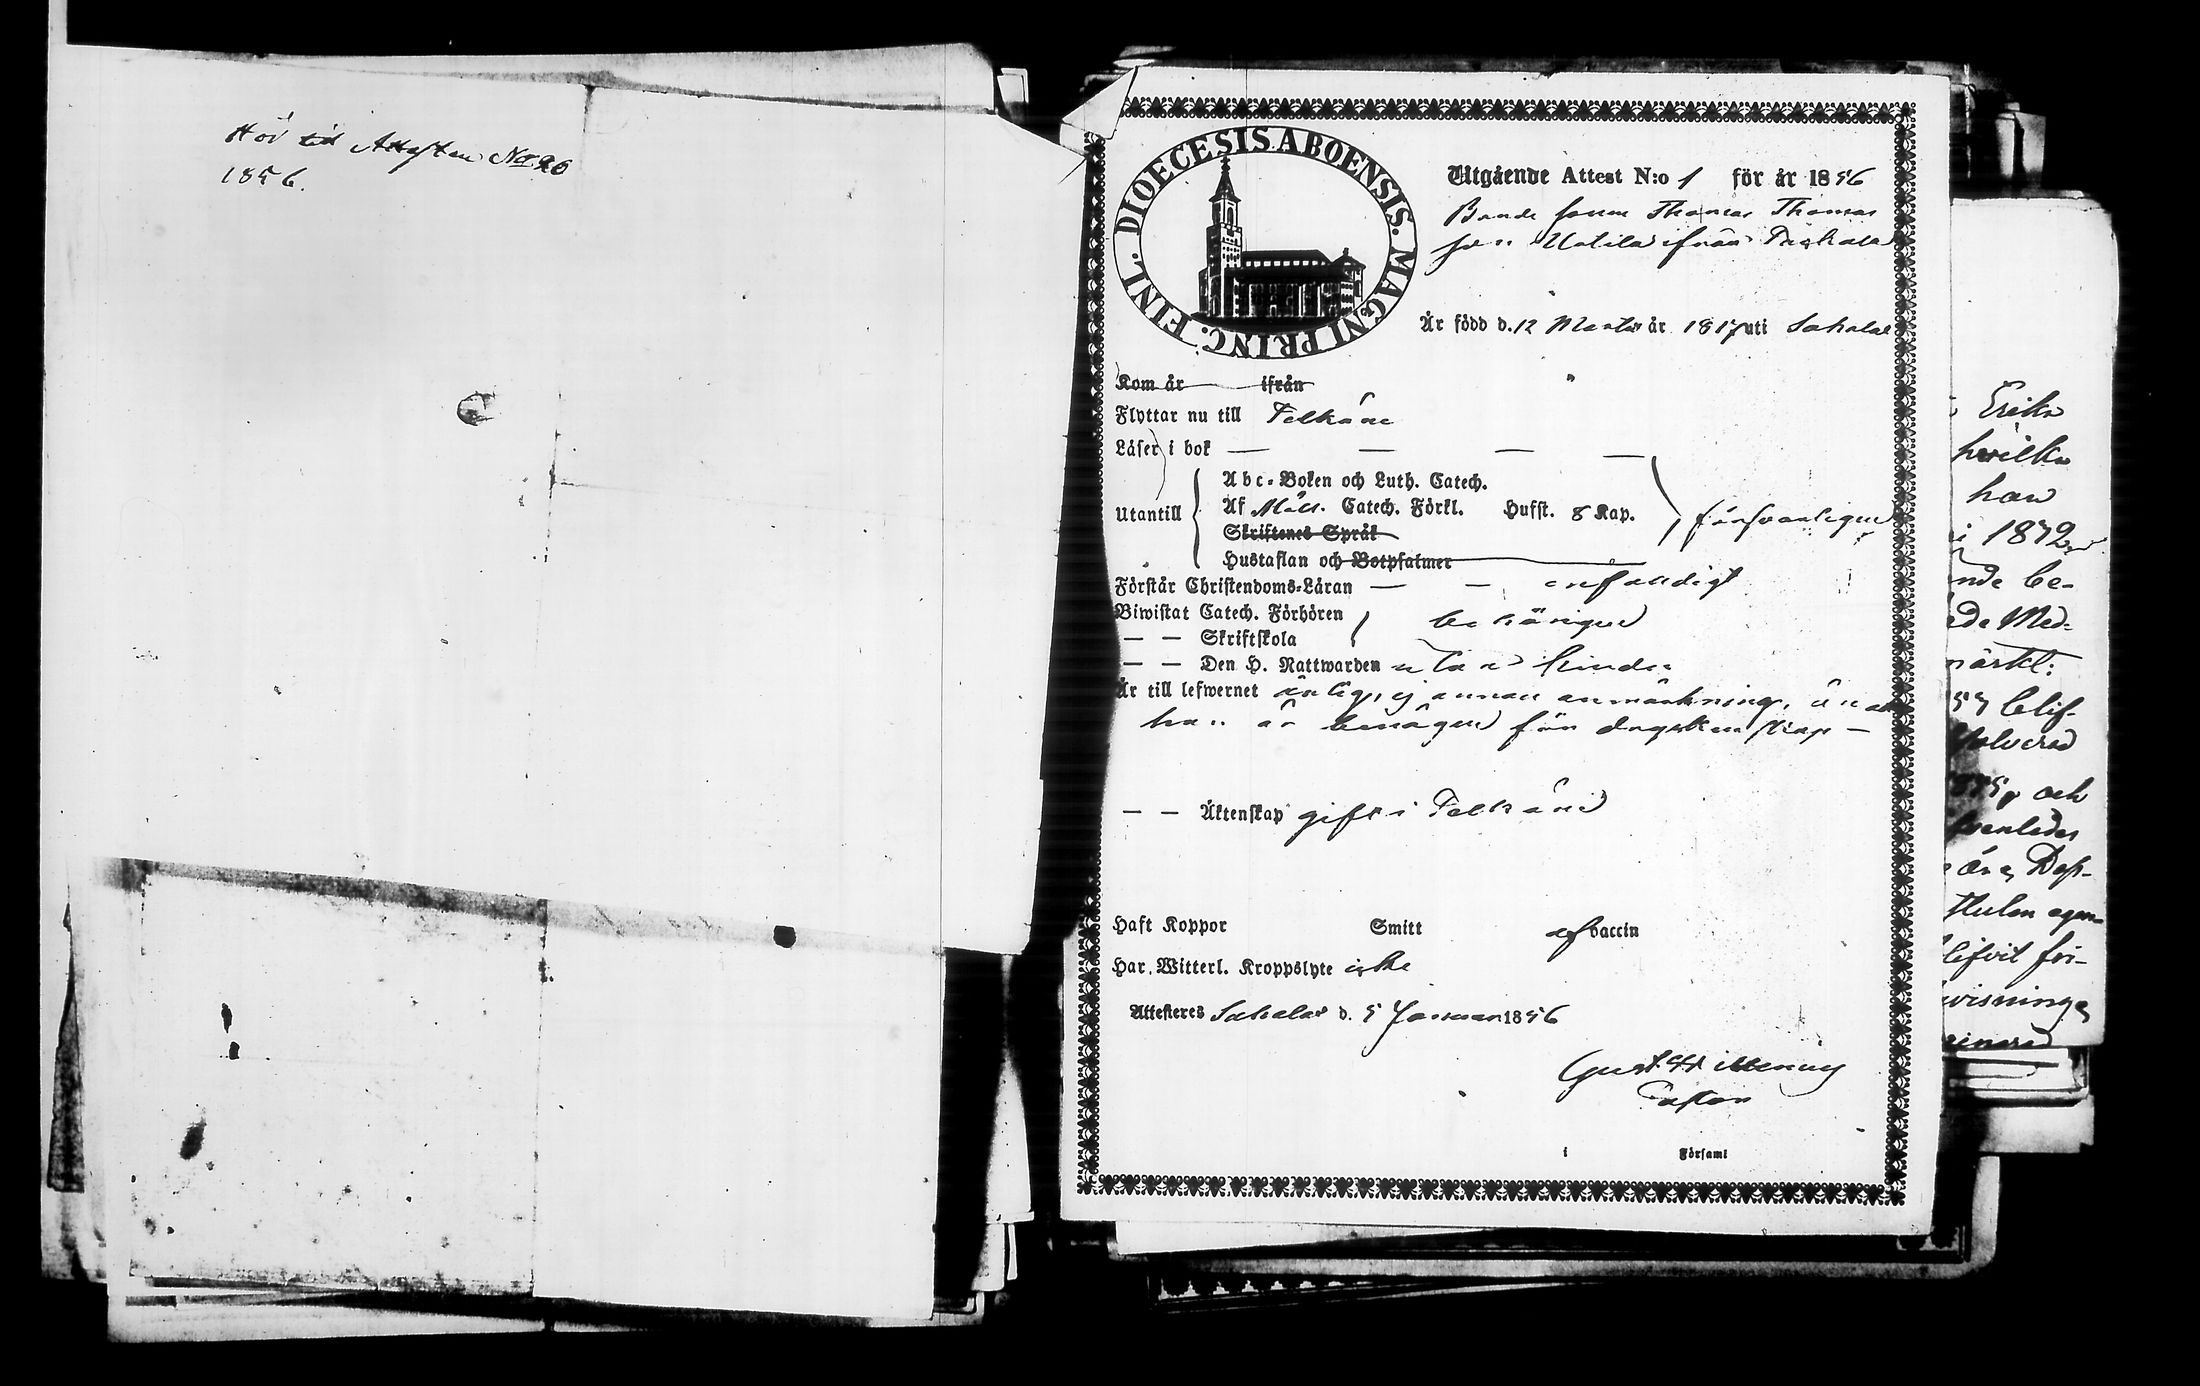 Hör till Attesten No 20
1856.
DIOECESIS ABOENSIS. MAGNI PRINC. FINL.
Utgående Attest N:o 1 för år 1856
Bonde sonen Thomas Thomas
son Uotila ifrån
Är född d. 12 Martii år 1817 uti Sahalax
Kom år ifrån
Flyttar nu till Pelkäne
Läser i bok — — — —
Abc-Boken och Luth. Catech.
Utantill Af Catech. Förkl. Hufst. 8 Kap. försvarligen
Skriftenes Språk
Hustaflan och Botpsalmer
Förstår Christendoms-Läran — — enfaldigt
Biwistat Catech. Förhören behörigen
— — Skriftskola
— — Den H. Nattwarden utan hinder
Är till lefwernet ärlig, ej annan anmärkning, än att
han är benägen för dryckenskap —
— — Äktenskap gift i Pelkäne
Haft Koppor Smitt af vaccin
Har Witterl. Kroppslyte icke
Attesteras Sahalax d. 5 Januari 1856
Gust.
Pastor
i Församl
Erika
hwilka
han
i 1872
nde be-
Med-
märkt:
blif-
och
ägen-
blifvit för-
wisning